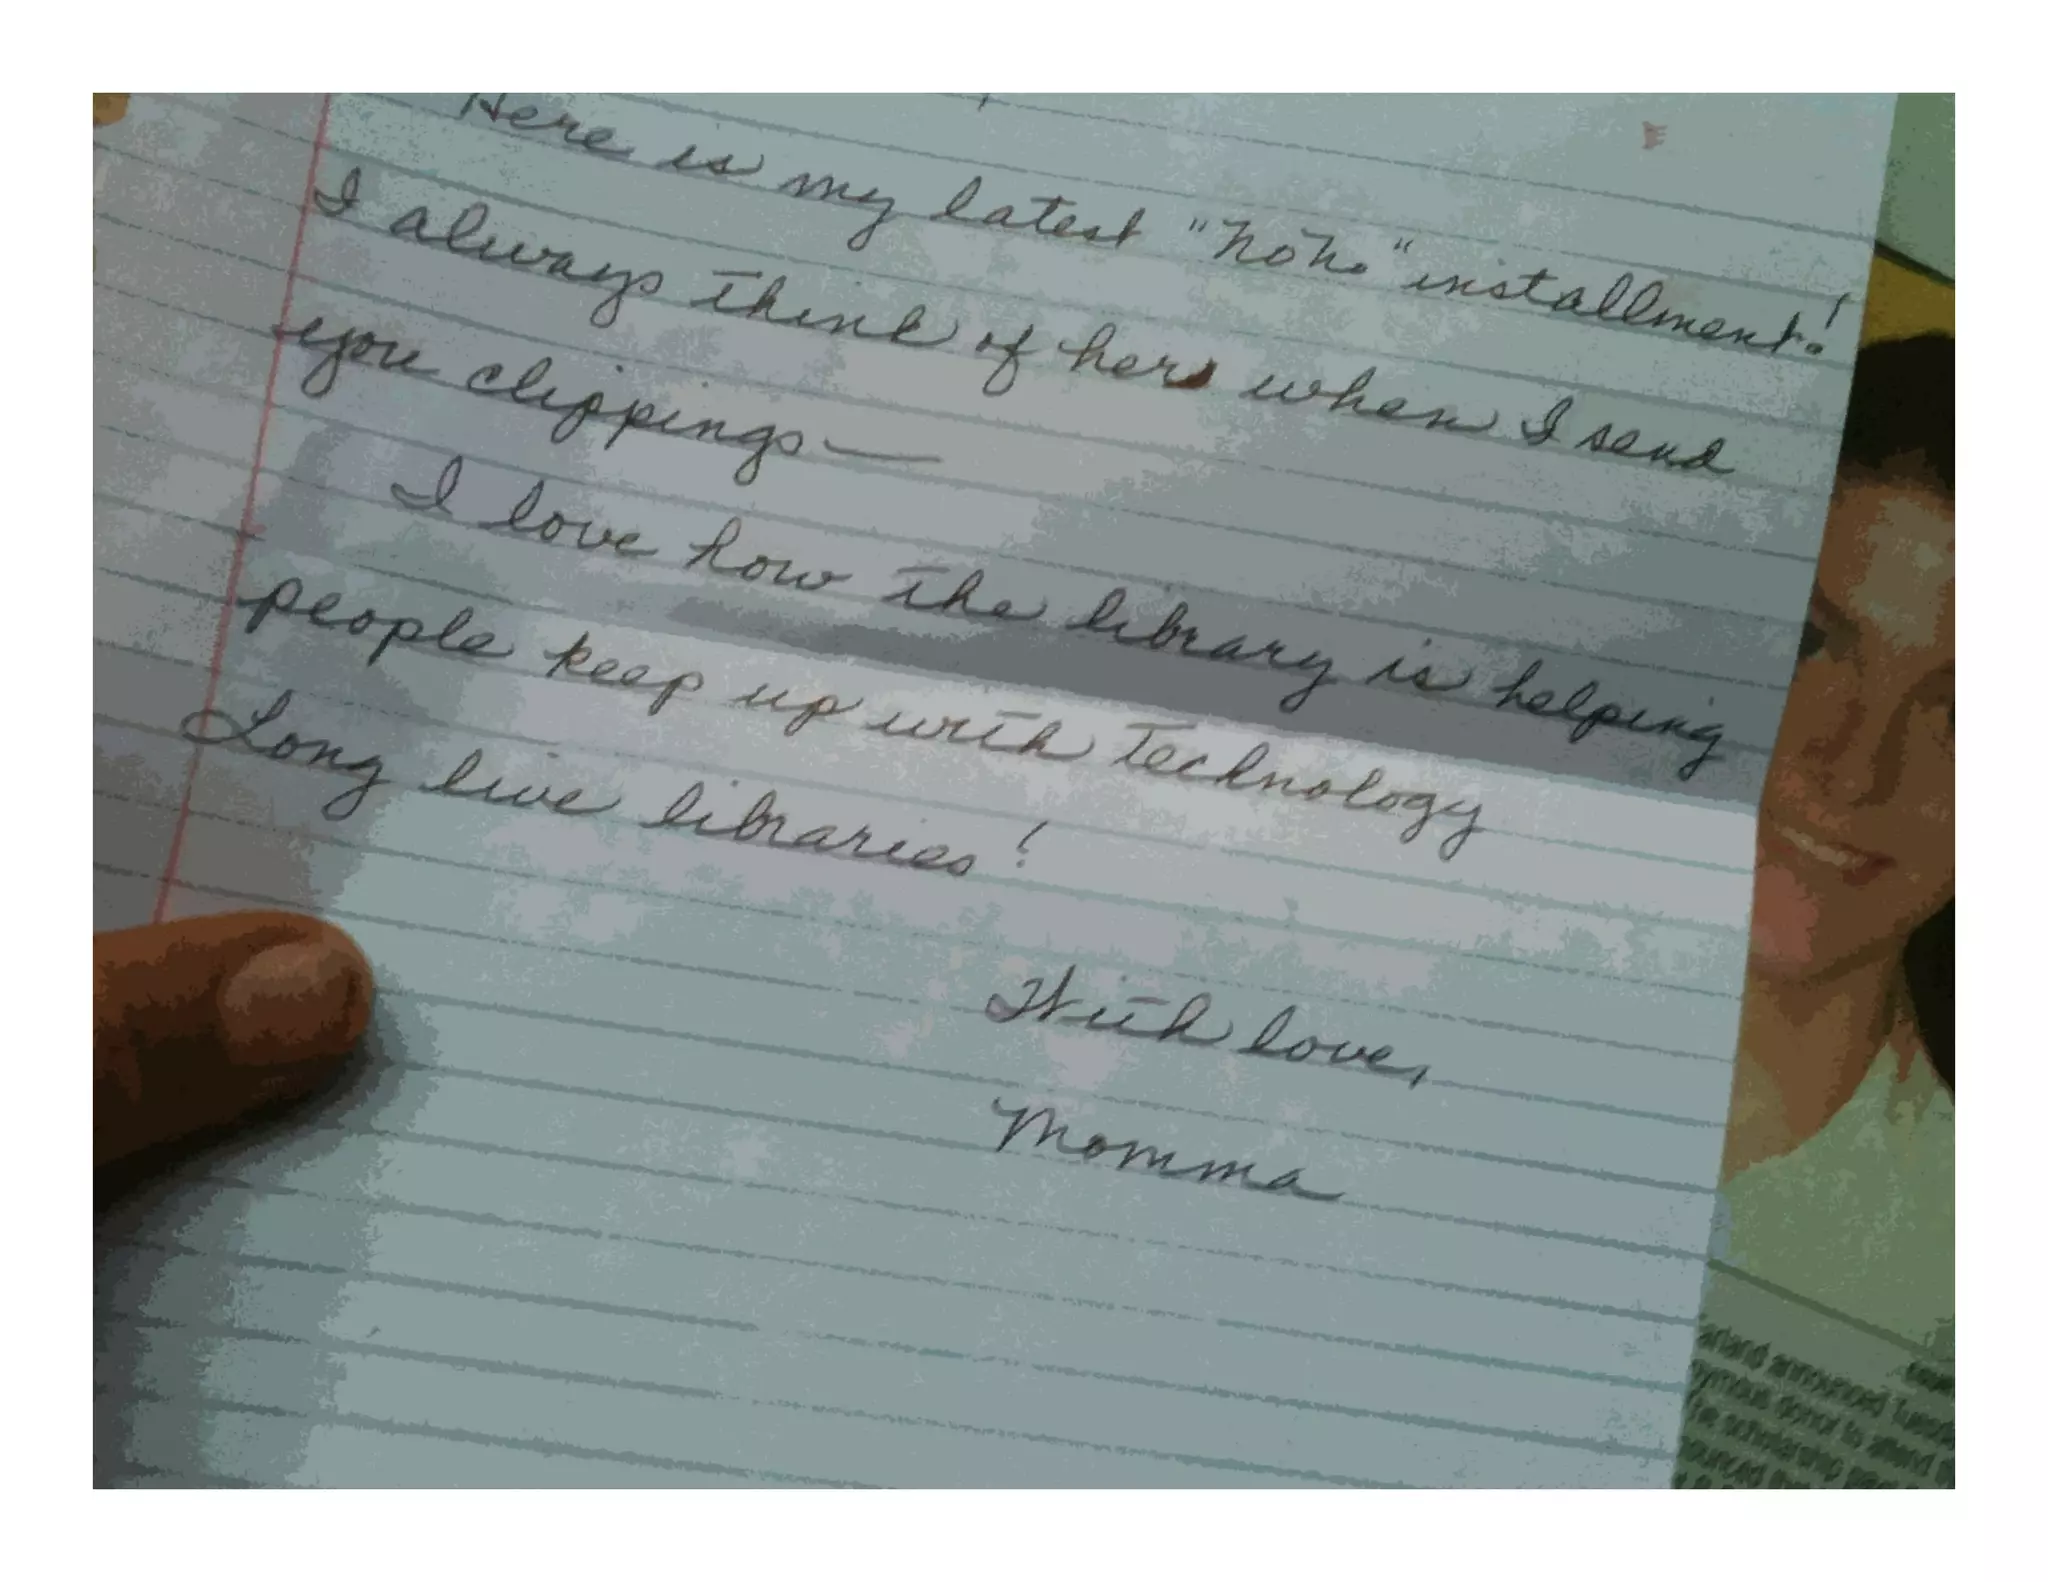 Here is my latest "NoNo" installment!
I always think of her when I send
you clippings—
I love how the library is helping
people keep up with technology
Long live libraries!
With love,
Momma
arland announced Tuesd
ymous donor to attend
he scholarship
ounced